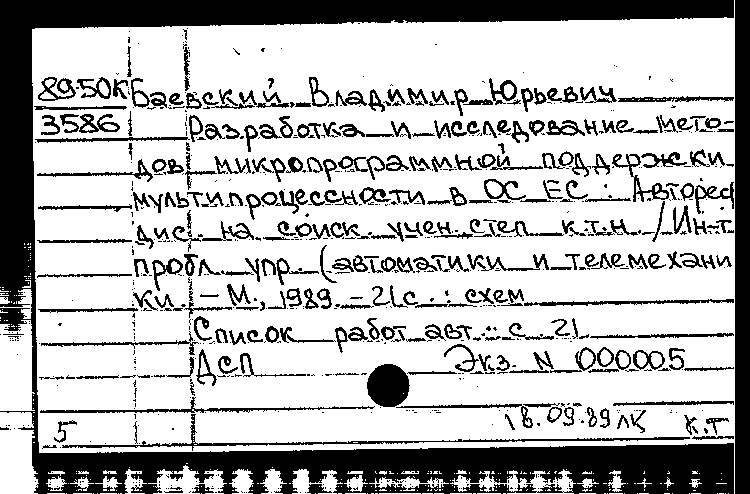 89-50К Баевский, Владимир Юрьевич
3586 Разработка и исследование мето-
дов микропрограммной поддержки
мультипроцессности в ОС ЕС : Автореф
дис. на соиск. учен. степ. к.т.н. / Ин-т
пробл. упр. (автоматики и телемехани
ки. – М., 1989. – 21 с. : схем
Список работ авт.: с. 21
ДСП Экз. N 000005
18.09.89 лк К.Т
5